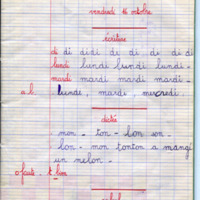 vendredi 16 octobre
écriture
di di didi di di di di di
lundi lundi lundi lundi -
mardi mardi mardi mardi -
a l. lundi, mardi, mercredi.
dictée
mon - ton - bon son -
bon - mon tonton a mangé
un melon -
0 faute. t bien
calcul